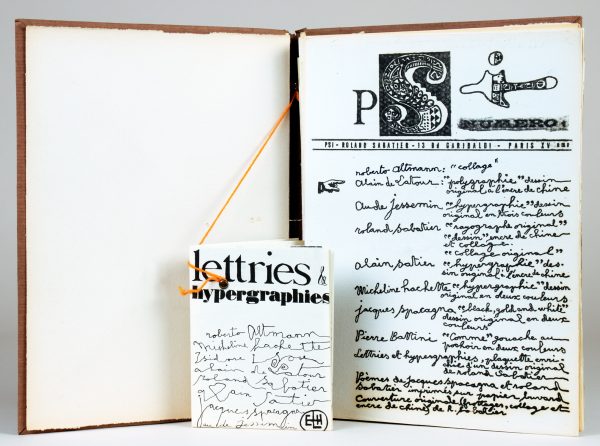 lettries &
hypergraphies
roberto Altmann
Micheline hachette
Isidore Isou
alain de Latour
roland sabatier
alain satier
jacques spacagna
aude jessemin
ELH
PSI
NUMERO 1
PSI - ROLAND SABATIER - 13 Bd GARIBALDI - PARIS XV eme
roberto Altmann: "collage"
alain de Latour: "polygraphie" dessin
original à l'encre de chine
Aude jessemin "hypergraphie" dessin
original en trois couleurs
roland sabatier "original"
"dessin" encre de chine
et collage.
"collage original"
alain satier "hypergraphie" des-
sin original: l'encre de chine
Micheline hachette "hypergraphie" dessin
original en deux couleurs
jacques spacagna "black, gold and white"
dessin original en deux
couleurs
Pierre Battini "Comme" gouache au
pochoir en deux couleurs
Lettries et hypergraphies, plaquette enri-
chie d'un dessin original
de roland Sabatier
Poèmes de Jacques spacagna et roland
Sabatier imprimés sur papier buvard
Couverture originale collage et
encre de chine de R. Sabatier